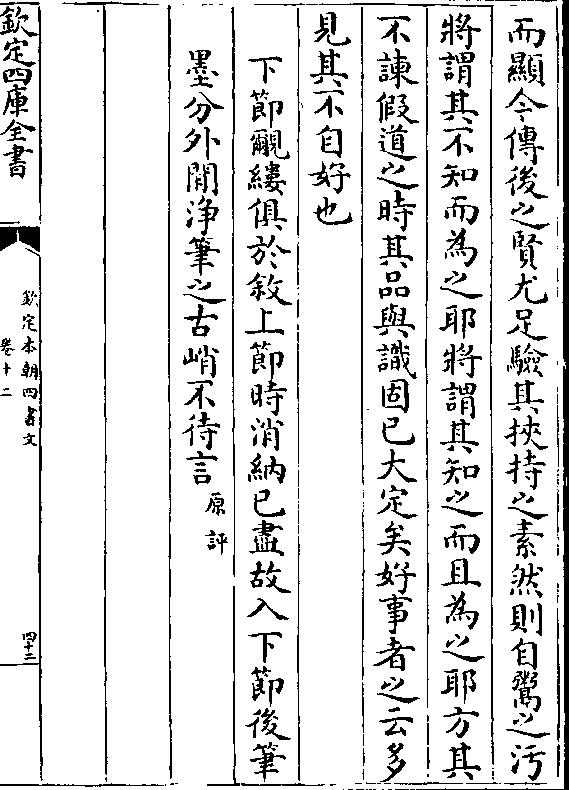 而顯今傳後之賢尤足驗其挾持之素然則自鬻之汚
將謂其不知而為之耶將謂其知之而且為之耶方其
不諫假道之時其品與識固已大定矣好事者之云多
見其不自好也
下節覼縷俱於敘上節時消納已盡故入下節後筆
墨分外閒淨筆之古峭不待言原評
欽定四庫全書
欽定本朝四書文
卷十二
四十二